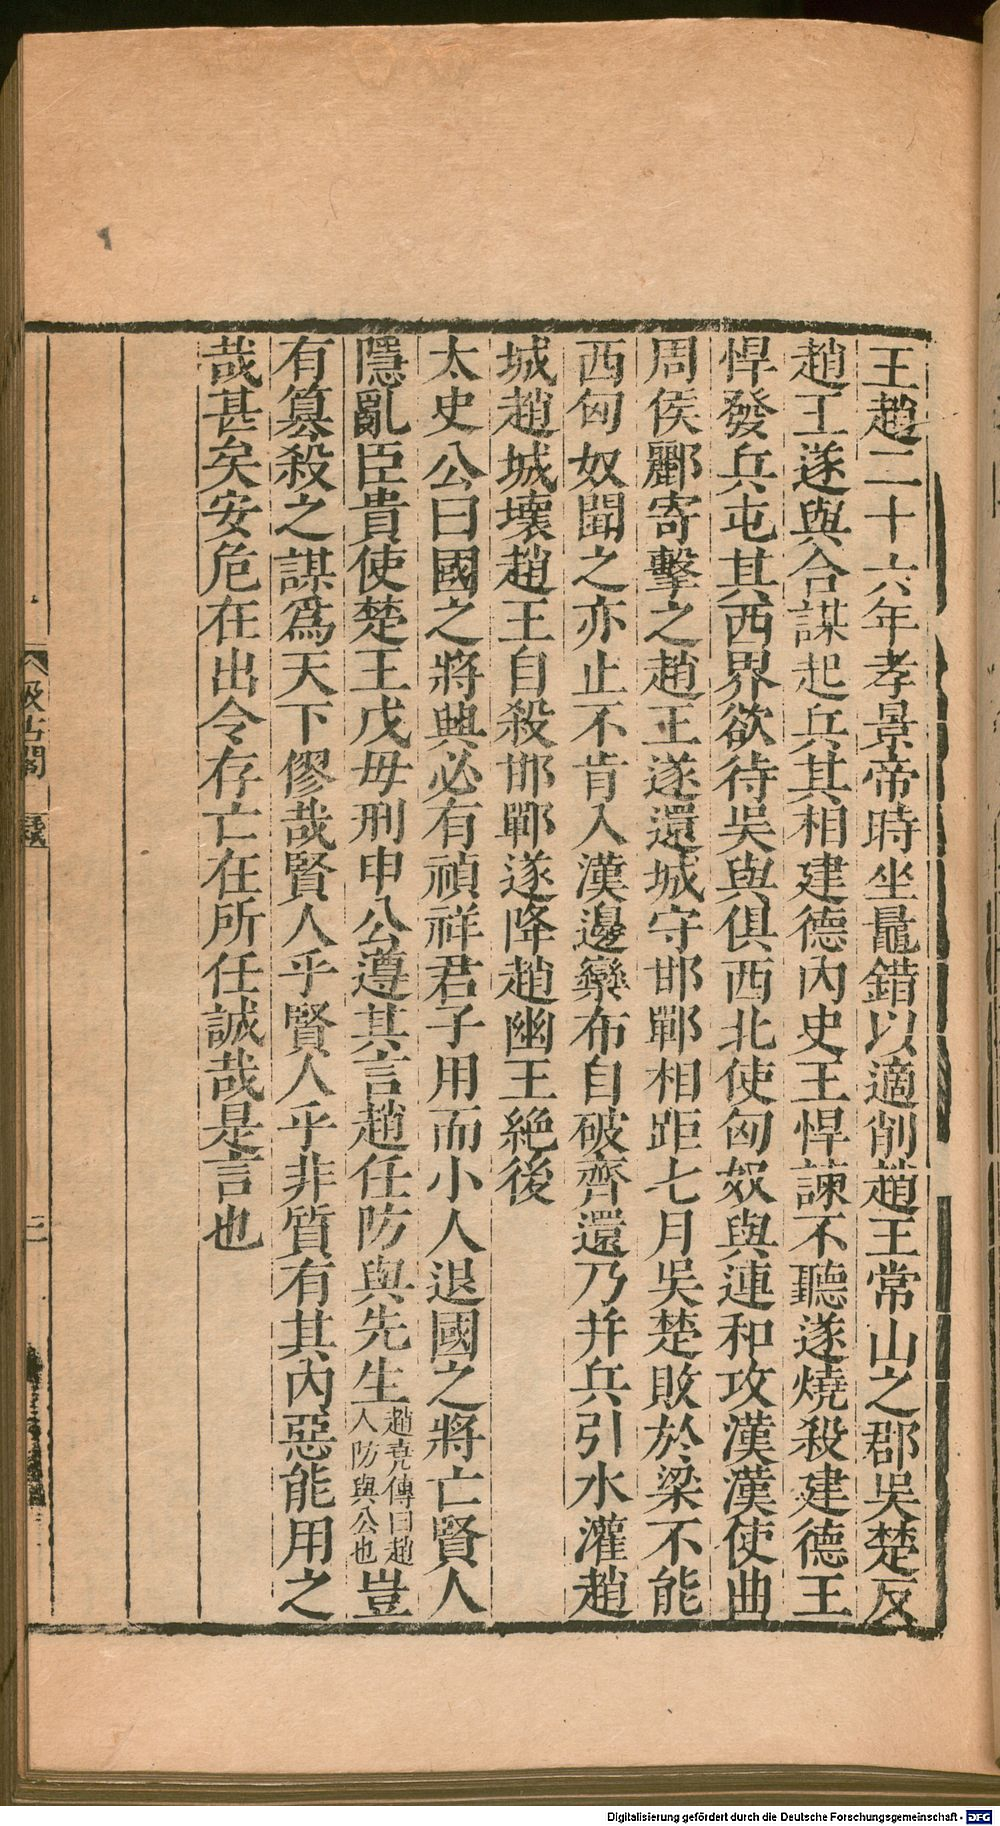 王趙二十六年孝景帝時坐鼂錯以適削趙王常山之郡吳楚反
趙王遂與合謀起兵其相建德內史王悍諫不聽遂燒殺建德王
悍發兵屯其西界欲待吳與俱西北使匈奴與連和攻漢漢使曲
周侯酈寄擊之趙王遂還城守邯鄲相距七月吳楚敗於梁不能
西匈奴聞之亦止不肯入漢邊欒布自破齊還乃并兵引水灌趙
城趙城壞趙王自殺邯鄲遂降趙幽王絕後
太史公曰國之將興必有禎祥君子用而小人退國之將亡賢人
隱亂臣貴使楚王戊毋刑申公遵其言趙任防與先生趙堯傳曰趙人防與公也豈
有篡殺之謀爲天下僇哉賢人乎賢人乎非質有其內惡能用之
哉甚矣安危在出令存亡在所任誠哉是言也
汲古閣
Digitalisierung gefördert durch die Deutsche Forschungsgemeinschaft - DFG